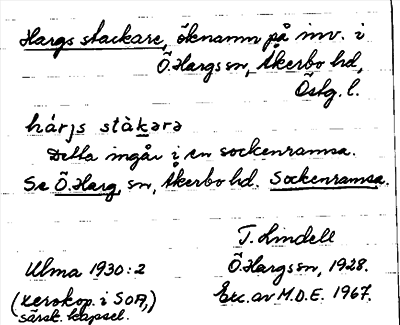 Hargs stackare, öknamn på inv. i
Ö. Hargs sn, Åkerbo hd,
Östg. l.
hárjs stàkərə
Detta ingår i en sockenramsa.
Se Ö. Harg, sn, Åkerbo hd. Sockenramsa.
T. Lindell
Ulma 1930:2
Ö. Hargs sn, 1928.
(xerokop. i SOA,)
Exc. av M.D.E. 1967.
särsk. kapsel.